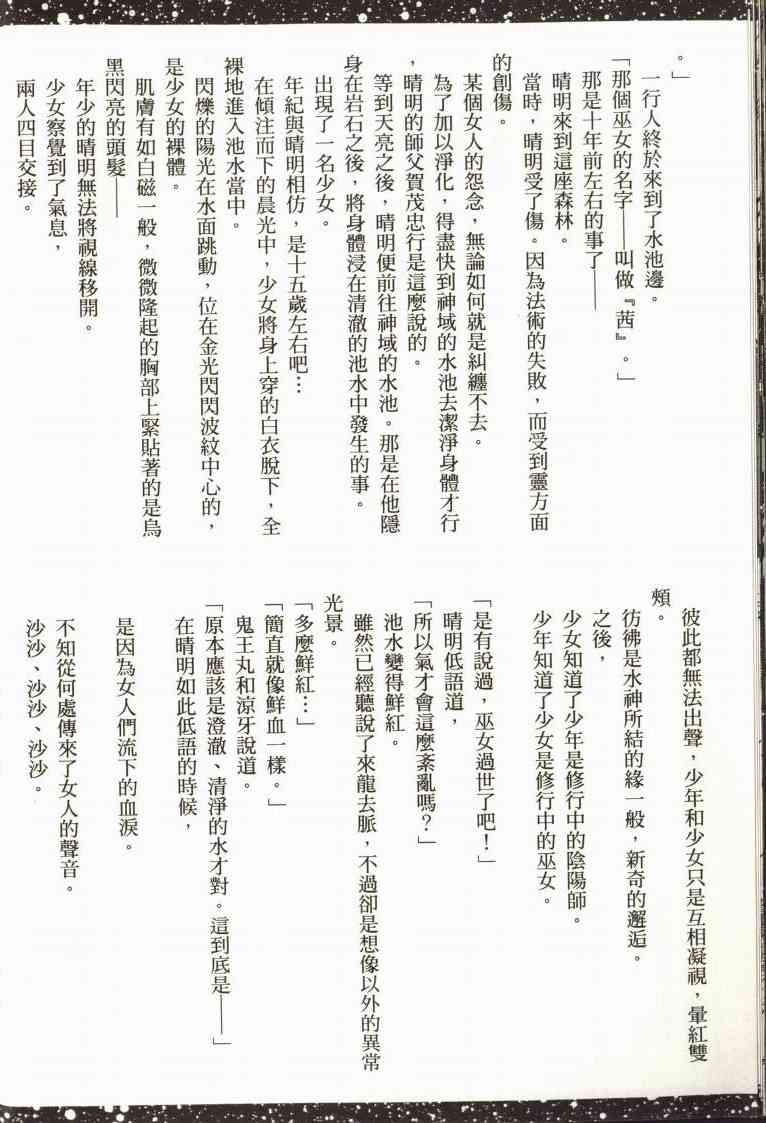 。」
一行人終於來到了水池邊。
「那個巫女的名字——叫做『茜』。」
那是十年前左右的事了——
晴明來到這座森林。
當時，晴明受了傷。因為法術的失敗，而受到靈方面
的創傷。
某個女人的怨念，無論如何就是糾纏不去。
為了加以淨化，得盡快到神域的水池去潔淨身體才行
，晴明的師父賀茂忠行是這麼說的。
等到天亮之後，晴明便前往神域的水池。那是在他隱
身在岩石之後，將身體浸在清澈的池水中發生的事。
出現了一名少女。
年紀與晴明相仿，是十五歲左右吧…
[…]
年少的晴明無法將視線移開。
少女察覺到了氣息，
兩人四目交接。
彼此都無法出聲，少年和少女只是互相凝視，暈紅雙
頰。
彷彿是水神所結的緣一般，新奇的邂逅。
之後，
少女知道了少年是修行中的陰陽師。
少年知道了少女是修行中的巫女。
「是有說過，巫女過世了吧！」
晴明低語道，
「所以氣才會這麼紊亂嗎？」
池水變得鮮紅。
雖然已經聽說了來龍去脈，不過卻是想像以外的異常
光景。
「多麼鮮紅…」
「簡直就像鮮血一樣。」
鬼王丸和涼牙說道。
「原本應該是澄澈、清淨的水才對。這到底是——」
在晴明如此低語的時候，
是因為女人們流下的血淚。
不知從何處傳來了女人的聲音。
沙沙、沙沙、沙沙。